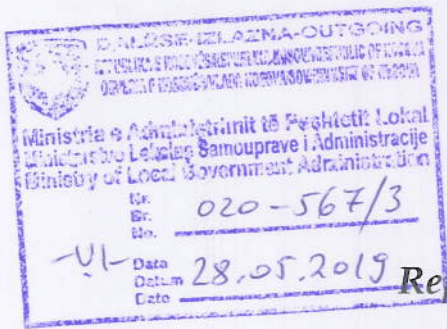 DALËSE-IZLAZNA-OUTGOING
Ministria e Administrimit të Pushtetit Lokal
Ministarstvo Lokalne Samouprave i Administracije
Ministry of Local Government Administration
Nr.
Br. 020-567/3
No.
-VI- Data
Datum 28.05.2019
Date
Re